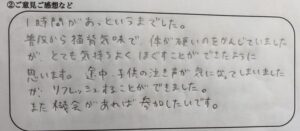 ②ご意見ご感想など
1時間があっというまでした。
普段から猫背気味で、体が硬いのをかんじていました
が、とても気持ちよくほぐすことができたように
思います。途中、子供の泣き声が気になってしまいました
が、リフレッシュすることができました。
また機会があれば参加したいです。